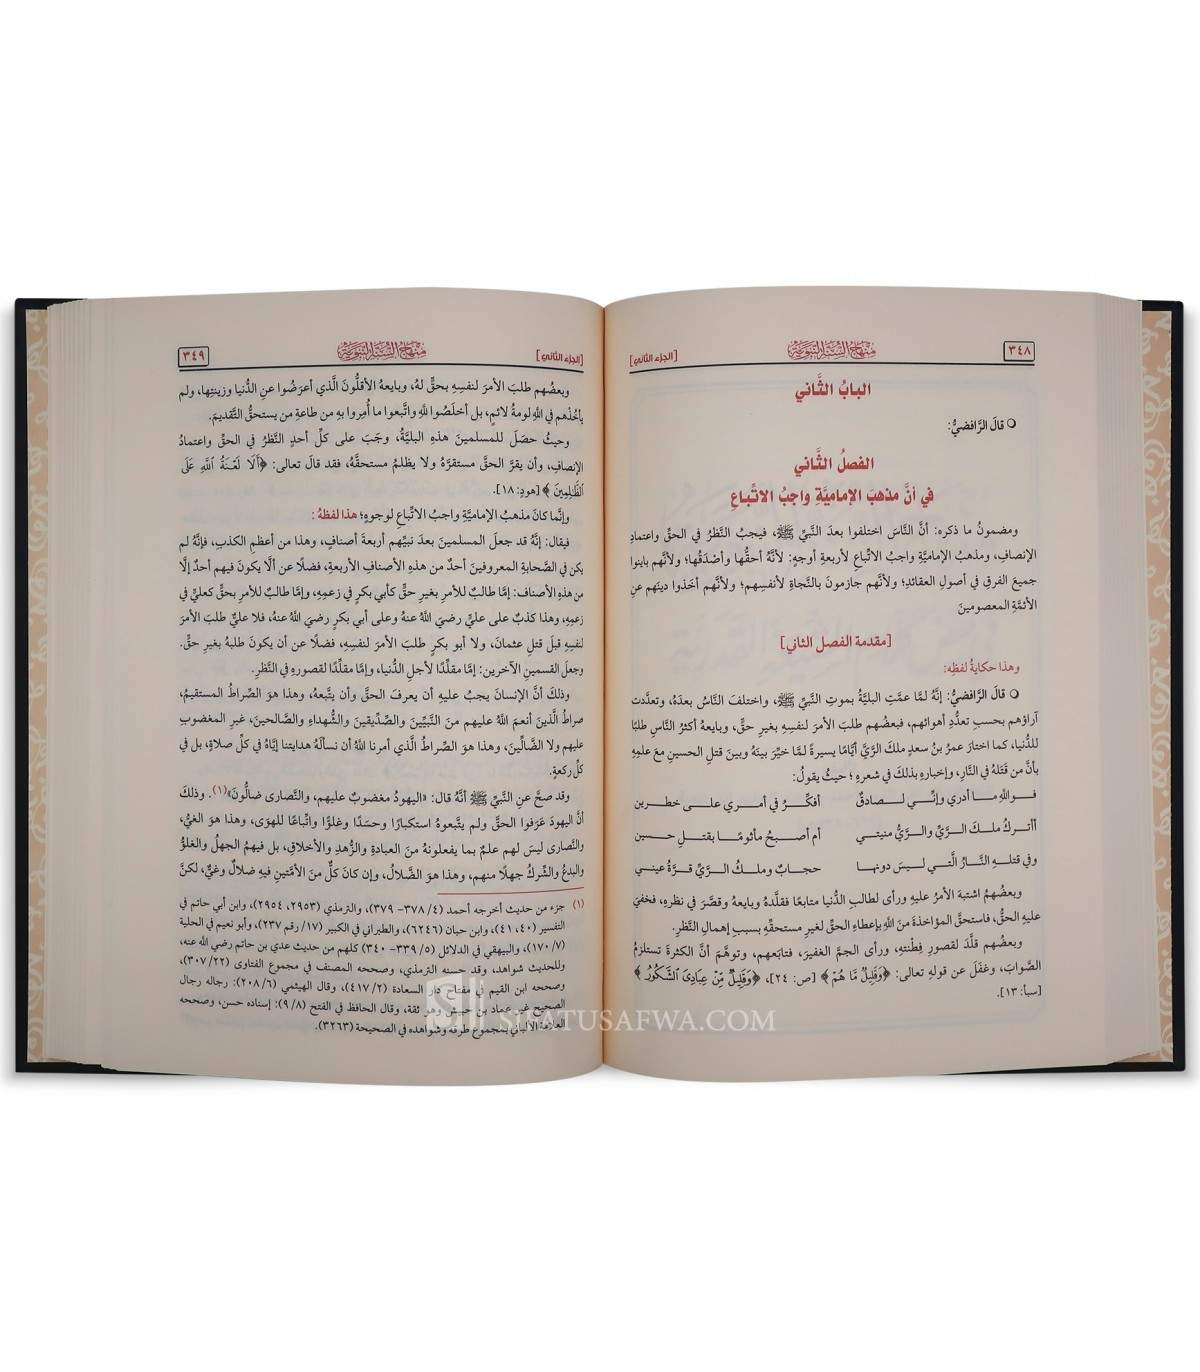 ٣٤٨
منهاج السنة النبوية
[الجزء الثاني]
البابُ الثَّاني
○ قالَ الرَّافضيُّ:
الفصلُ الثَّاني
في أنَّ مذهبَ الإماميَّةِ واجبُ الاتِّباعِ
ومضمونُ ما ذكره: أنَّ النَّاسَ اختلفوا بعدَ النَّبيِّ ﷺ، فيجبُ النَّظرُ في الحقِّ واعتمادِ
الإنصافِ، ومذهبُ الإماميَّةِ واجبُ الاتِّباعِ لأربعةِ أوجهٍ: لأنَّهُ أحقُّها وأصْدَقُها؛ ولأنَّهم باينوا
جميعَ الفرقِ في أصولِ العقائدِ؛ ولأنَّهم جازمونَ بالنَّجاةِ لأنفسِهم؛ ولأنَّهم أخَذوا دينَهم عنِ
الأئمَّةِ المعصومينَ
[مقدمة الفصل الثاني]
وهذا حكايةُ لفظِهِ:
○ قالَ الرَّافضيُّ: إنَّهُ لمَّا عمَّتِ البليَّةُ بموتِ النَّبيِّ ﷺ، واختلفَ النَّاسُ بعدَهُ، وتعدَّدت
آراؤهم بحسبِ تعدُّدِ أهوائهم، فبعضُهم طلبَ الأمرَ لنفسِهِ بغيرِ حقٍّ، وبايعهُ أكثرُ النَّاسِ طلبًا
للدُّنيا، كما اختار عمرُ بنُ سعدٍ ملكَ الرَّيِّ أيَّامًا يسيرةً لمَّا خيِّرَ بينَهُ وبينَ قتلِ الحسينِ معَ علمِهِ
بأنَّ من قَتَلهُ في النَّارِ، وإخبارِهِ بذلكَ في شعرِهِ؛ حيثُ يقولُ:
فـواللهِ مـا أدري وإنِّـي لـصادقٌ أفكِّـرُ في أمـري علـى خطـرين
أأتركُ ملكَ الرَّيِّ والرَّيُّ منيتي أم أصبـحُ مأثومًـا بقتـلِ حسـين
وفي قتلـهِ النَّـارُ الَّتـي ليـسَ دونهـا حجـابٌ وملـكُ الرَّيِّ قـرَّةُ عينـي
وبعضُهمُ اشتبهَ الأمرُ عليهِ ورأى لطالبِ الدُّنيا متابعا فقلَّدهُ وبايعهُ وقصَّرَ في نظرِهِ، فخفيَ
عليهِ الحقُّ، فاستحقَّ المؤاخذةَ منَ اللهِ بإعطاءِ الحقِّ لغيرِ مستحقِّهِ بسببِ إهمالِ النَّظرِ.
وبعضُهم قلَّدَ لقصورِ فِطْنتِهِ، ورأى الجمَّ الغفيرَ، فتابعَهم، وتوهَّمَ أنَّ الكثرةَ تستلزمُ
الصَّوابَ، وغفَلَ عن قولِهِ تعالى: ﴿وَقَلِيلٌ مَّا هُمْ﴾ [ص: ٢٤]، ﴿وَقَلِيلٌ مِّنْ عِبَادِىَ ٱلشَّكُورُ﴾
[سبأ: ١٣].
[الجزء الثاني]
منهاج السنة النبوية
٣٤٩
وبعضُهم طلبَ الأمرَ لنفسِهِ بحقٍّ لهُ، وبايعهُ الأقلُّونَ الَّذي أعرَضُوا عنِ الدُّنيا وزينتِها، ولم
يأخُذْهم في اللهِ لومةُ لائمٍ، بل أخلَصُوا للهِ واتَّبعوا ما أُمِروا بهِ من طاعةِ من يستحقُّ التَّقديمَ.
وحيثُ حصَلَ للمسلمينَ هذهِ البليَّةُ، وجَبَ على كلِّ أحدٍ النَّظرُ في الحقِّ واعتمادُ
الإنصافِ، وأن يقرَّ الحقَّ مستقرَّهُ ولا يظلمُ مستحقَّهُ، فقد قالَ تعالى: ﴿أَلَا لَعْنَةُ ٱللَّهِ عَلَى
ٱلظَّٰلِمِينَ﴾ [هودٍ: ١٨].
وإنَّما كانَ مذهبُ الإماميَّةِ واجبُ الاتِّباعِ لوجوهٍ؛ هذا لفظُهُ:
فيقال: إنَّهُ قد جعلَ المسلمينَ بعدَ نبيِّهم أربعةَ أصنافٍ، وهذا من أعظمِ الكذبِ، فإنَّهُ لم
يكن في الصَّحابةِ المعروفينَ أحدٌ من هذهِ الأصنافِ الأربعةِ، فضلًا عن ألَّا يكونَ فيهم أحدٌ إلَّا
من هذهِ الأصناف: إمَّا طالبٌ للأمرِ بغيرِ حقٍّ كأبي بكرٍ في زعمِهِ، وإمَّا طالبٌ للأمرِ بحقٍّ كعليٍّ في
زعمِهِ، وهذا كذبٌ على عليٍّ رضيَ اللهُ عنهُ وعلى أبي بكرٍ رضيَ اللهُ عنهُ، فلا عليٌّ طلبَ الأمرَ
لنفسِهِ قبلَ قتلِ عثمانَ، ولا أبو بكرٍ طلبَ الأمرَ لنفسِهِ، فضلًا عن أن يكونَ طلبهُ بغيرِ حقٍّ.
وجعلَ القسمينِ الآخرينِ: إمَّا مقلِّدًا لأجلِ الدُّنيا، وإمَّا مقلِّدًا لقصورِهِ في النَّظرِ.
وذلكَ أنَّ الإنسانَ يجبُ عليهِ أن يعرفَ الحقَّ وأن يتَّبعهُ، وهذا هوَ الصِّراطُ المستقيمُ،
صراطُ الَّذينَ أنعمَ اللهُ عليهم منَ النَّبيِّينَ والصِّدِّيقينَ والشُّهداءِ والصَّالحينَ، غيرِ المغضوبِ
عليهم ولا الضَّالِّينَ، وهذا هوَ الصِّراطُ الَّذي أمرنا اللهُ أن نسألَهُ هدايتنا إيَّاهُ في كلِّ صلاةٍ، بل في
كلِّ ركعةٍ.
وقد صحَّ عنِ النَّبيِّ ﷺ أنَّهُ قال: «اليهودُ مغضوبٌ عليهم، والنَّصارى ضالُّونَ»(١). وذلكَ
أنَّ اليهودَ عَرَفوا الحقَّ ولم يتَّبعوهُ استكبارًا وحسَدًا وغلوًّا واتِّباعًا للهوَى، وهذا هوَ الغيُّ،
والنَّصارى ليسَ لهم علمٌ بما يفعلونهُ منَ العبادةِ والزُّهدِ والأخلاقِ، بل فيهمُ الجهلُ والغلوُّ
والبدعُ والشِّركُ جهلًا منهم، وهذا هوَ الضَّلالُ، وإن كانَ كلٌّ منَ الأمَّتينِ فيهِ ضلالٌ وغيٌّ، لكنَّ
(١) جزء من حديث أخرجه أحمد (٤/ ٣٧٨- ٣٧٩)، والترمذي (٢٩٥٣، ٢٩٥٤)، وابن أبي حاتم في
التفسير (٤٠، ٤١)، وابن حبان (٦٢٤٦)، والطبراني في الكبير (١٧/ رقم ٢٣٧)، وأبو نعيم في الحلية
(٧/ ١٧٠)، والبيهقي في الدلائل (٥/ ٣٣٩- ٣٤٠) كلهم من حديث عدي بن حاتم رضي الله عنه،
وللحديث شواهد، وقد حسنه الترمذي، وصححه المصنف في مجموع الفتاوى (٢٢/ ٣٠٧)،
وصححه ابن القيم في مفتاح دار السعادة (٢/ ٤١٧)، وقال الهيثمي (٦/ ٢٠٨): رجاله رجال
الصحيح غير عماد بن حبيش وهو ثقة، وقال الحافظ في الفتح (٨/ ٩): إسناده حسن، وصححه
العلامة الألباني بمجموع طرقه وشواهده في الصحيحة (٣٢٦٣).
SIFATUSAFWA.COM